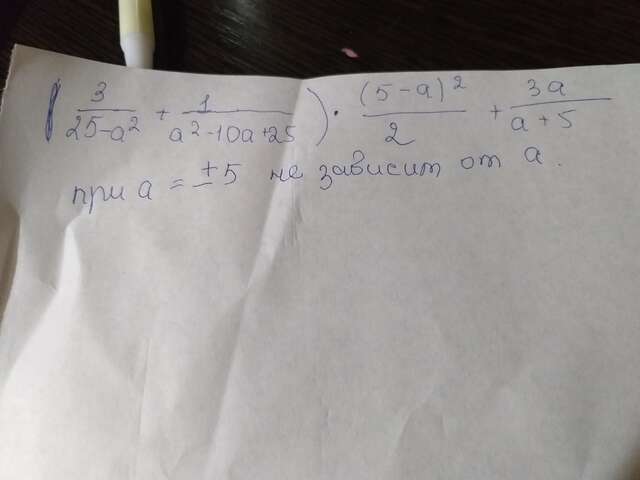 ( 3/(25-a²) + 1/(a²-10a+25) ) · (5-a)²/2 + 3a/(a+5)
при a = ±5 не зависит от a.